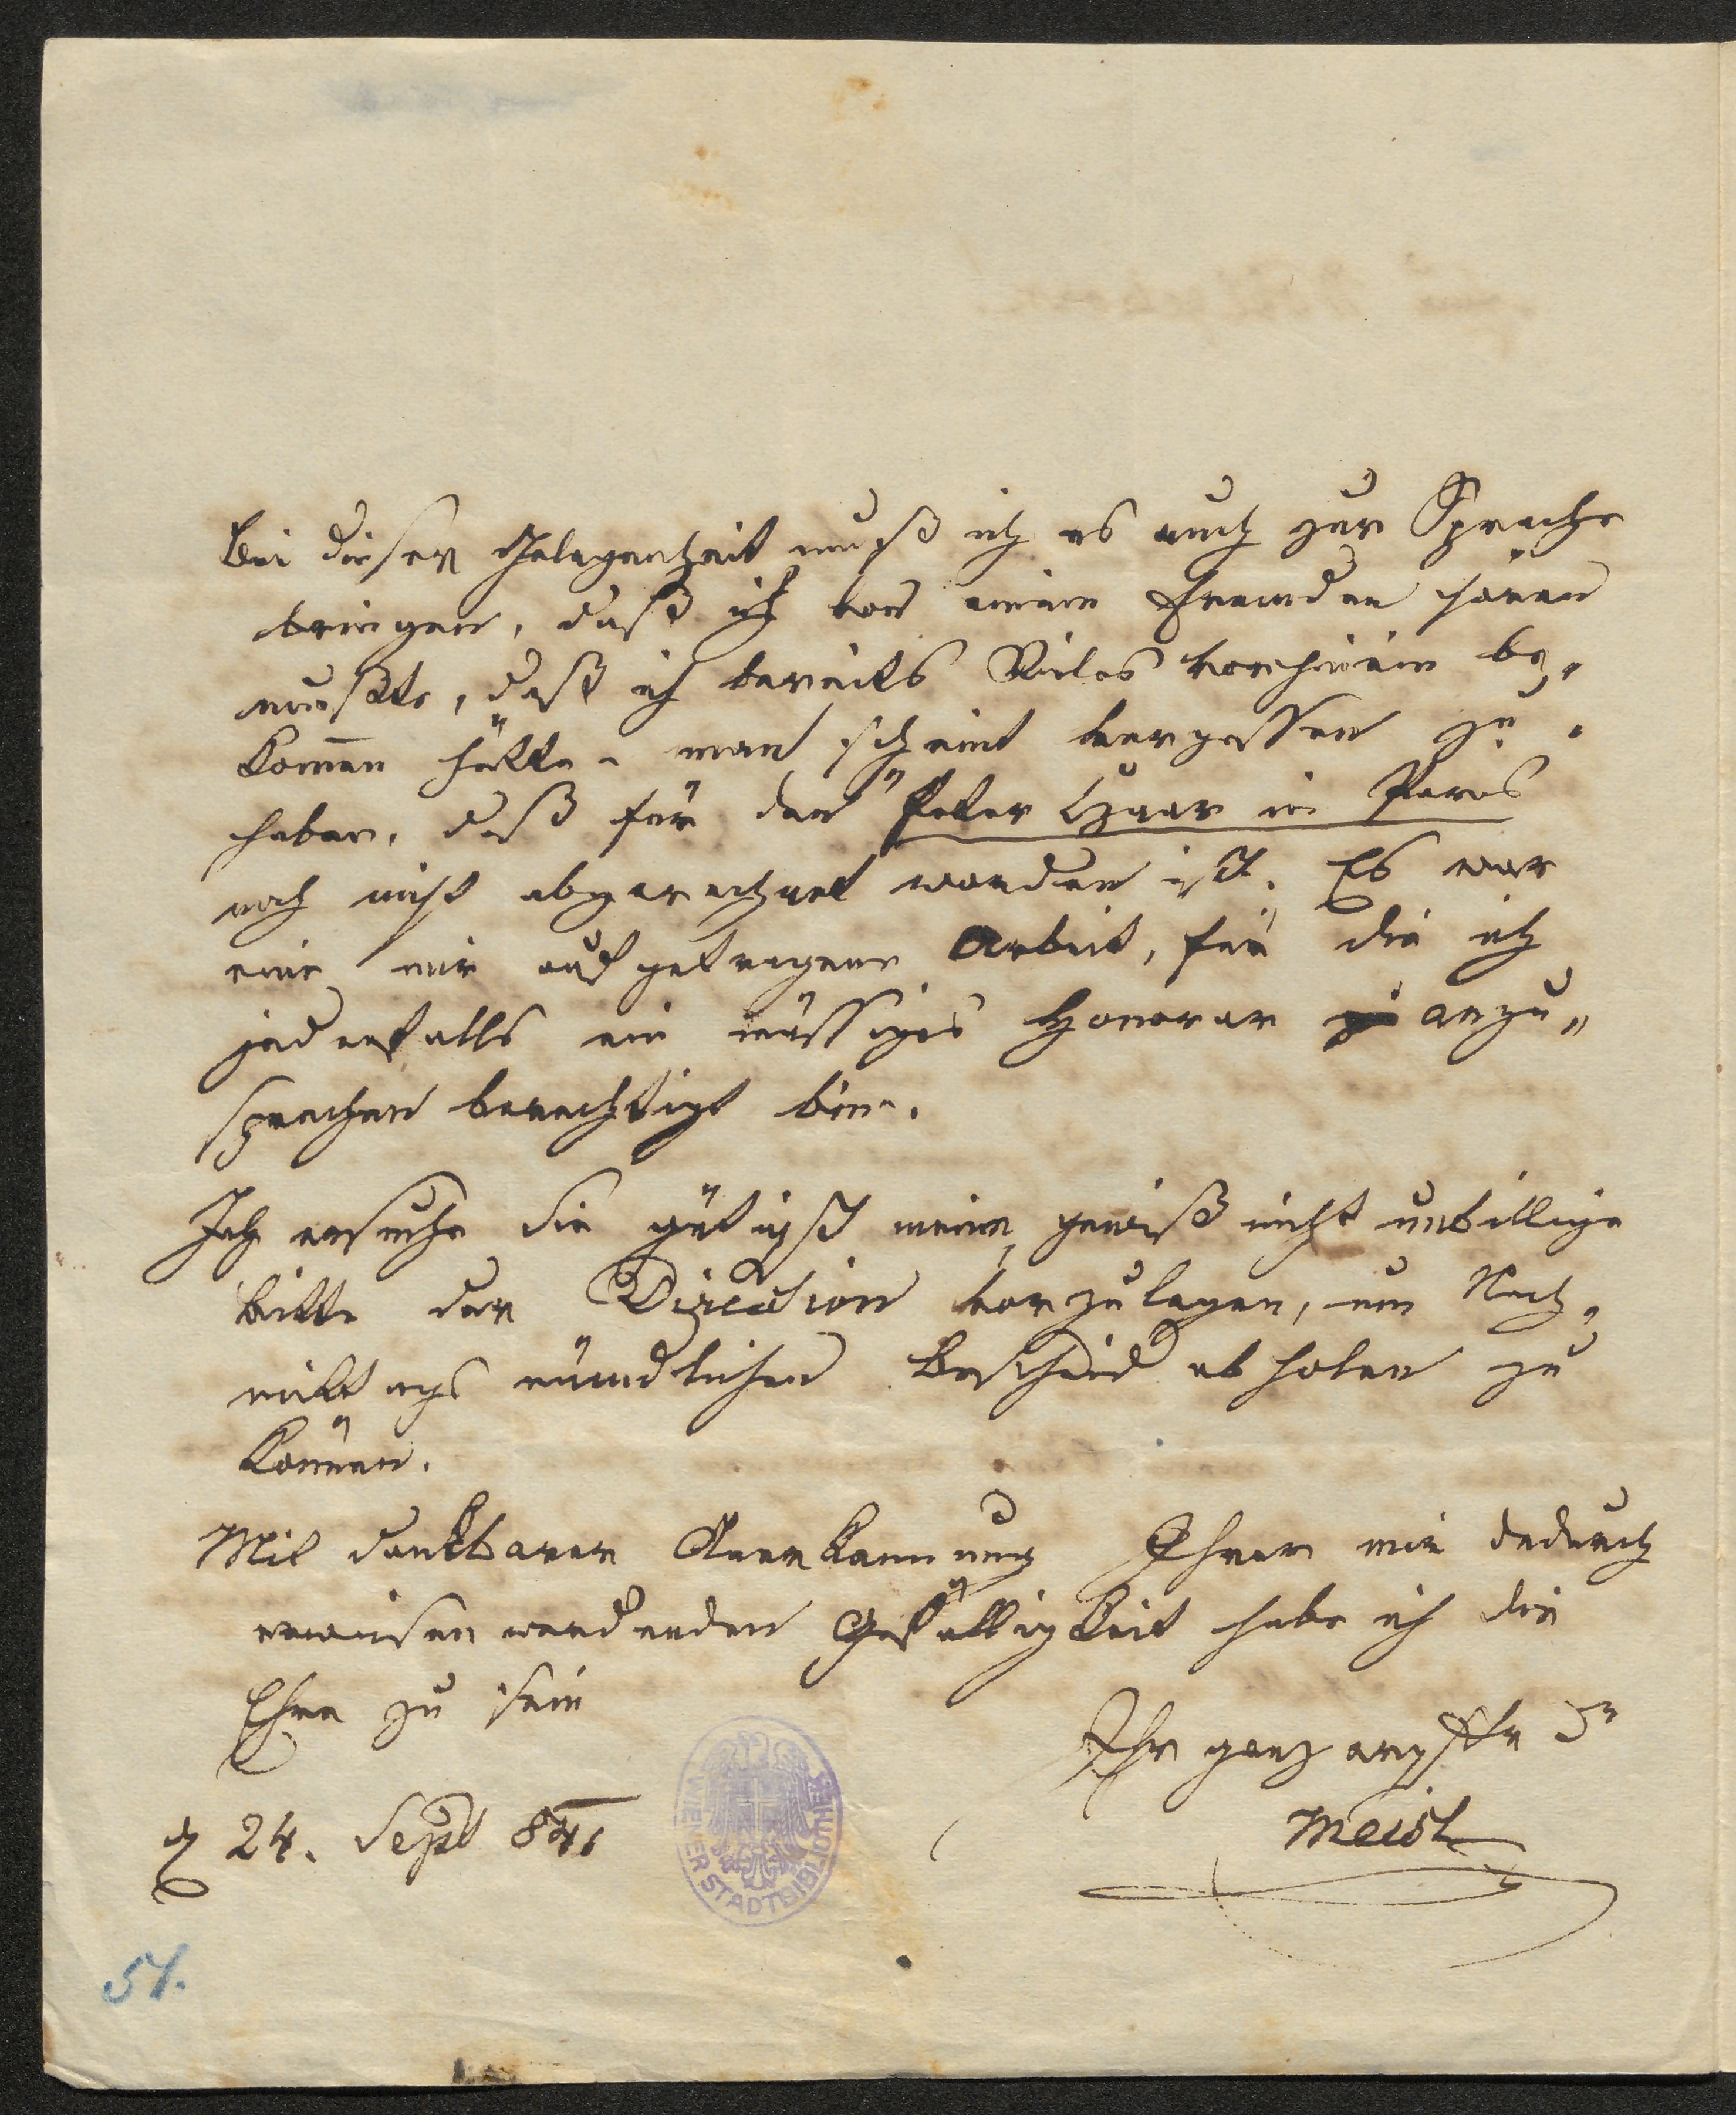 Bei dieser Gelegenheit muß ich es auch zur Sprache
bringen, daß ich von einem Fremden hören
mußte, daß ich bereits Vieles vorhinein be„
kom̄en hätte – man scheint vergessen zu
haben, daß für den "Peter Czaar in Paris
noch nicht abgerechnet worden ist. Es war
eine mir aufgetragene Arbeit, für die ich
jedenfalls ein mässiges Honorar anzu„
sprechen berechtigt bin.
Ich ersuche Sie gütigst meine, gewiß nicht unbillige
Bitte der Direction vorzulegen, um Nach„
mittags mündlichen Bescheid abholen zu
können.
Mit dankbarer Anerkennung Ihrer mir dadurch
erwiesen werdenden Gefälligkeit habe ich die
Ehre zu sein
Ihr ganz ergstr Dr
Meisl
d 24. Sept 841
WIENER STADTBIBLIOTHEK
51.